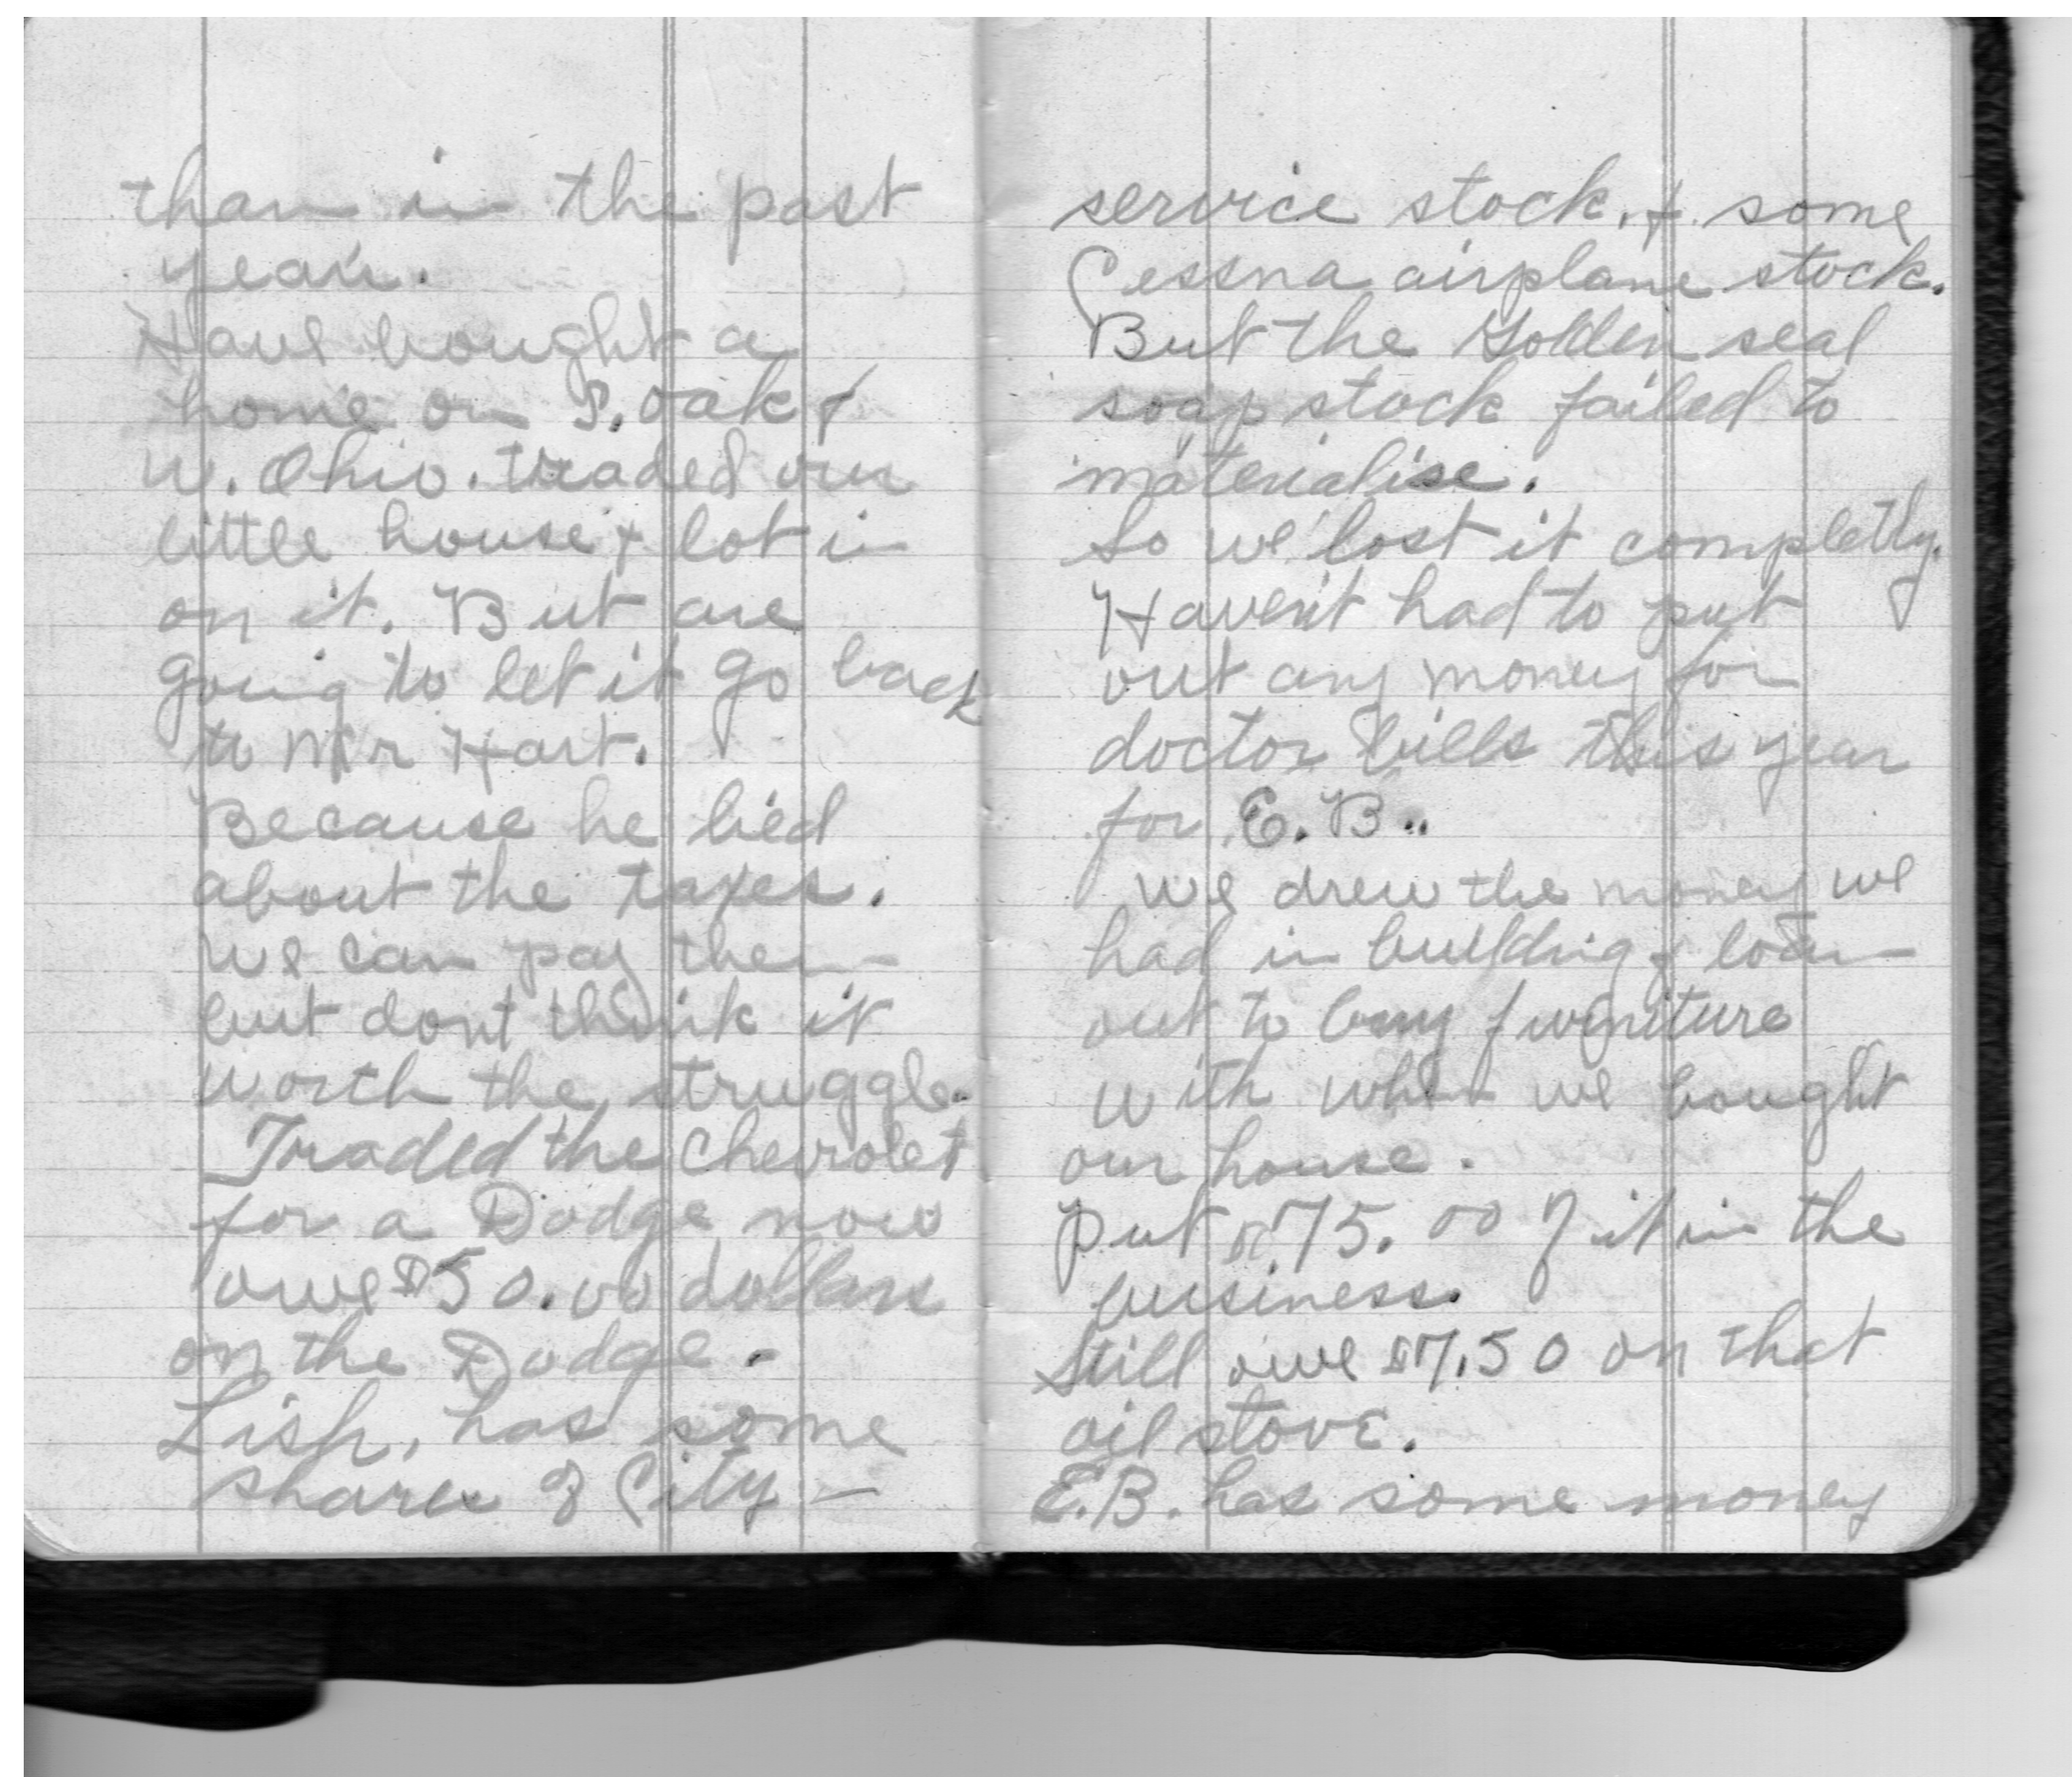 than in the past
year.
Have bought a
home on S. Oak &
W. Ohio. traded our
little house & lot in
on it. But are
going to let it go back
to Mr Hart.
Because he lied
about the taxes.
we can pay them
but dont think it
worth the struggle.
Traded the Chevrolet
for a Dodge now
owe $50.00 dollars
on the Dodge.
Lish, has some
shares of City —
service stock, & some
Cessna airplane stock.
But the Golden seal
soap stock failed to
materialise.
So we lost it completly.
Haven't had to put
out any money for
doctor bills this year
for E. B..
we drew the money we
had in building & loan
out to buy furniture
with when we bought
our house.
put $75.00 of it in the
business.
Still owe $7.50 on that
oil stove.
E.B. has some money